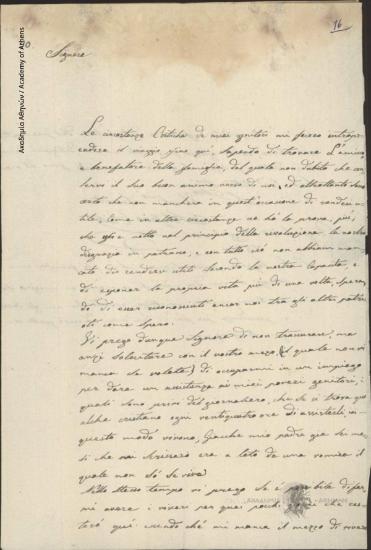 Ακαδημία Αθηνών / Academy of Athens
16
Signore
Le circostanze critiche de miei genitori mi fecero intrap-
rendere il viaggio fino qui, sapendo di trovare l'amico
e benefatore della famiglia, del quale non dubito che con-
servi il suo buon animo verso di noi, ed altrettanto sono
certo che non mancherà in quest'occasione di rendersi u-
tile, come in altre circostanze ne hò la prova, più
che nel principio della rivoluzione la nostra
disgrazia in patrasso, e con tutto ciò non abbiamo man-
cato di renderci utili secondo la nostra
di esponer la propria vita più di una volta, speran-
do di esser riconosciuti ancor noi tra gli altri patri-
oti come spero.
Vi prego dunque Signore di non trascurare, ma
anzi solecitare con il vostro mezo, (il quale non vi
manca se volete) di occuparmi in un impiego
per dare un assistenza ai miei poveri genitori, i
quali sono privi del giornaliero, che se si trova qu-
alche cristiano ogni ventiquatro ore di assisterli, in
questo modo vivono, giache mio padre già sei me-
si che era a leto da una
quale non sò se viva
Nello stesso tempo vi prego se è possibile di far-
mi avere i viveri per quei pochi che res-
terò quì essendo chè mi manca il mezzo di vivere
ΑΚΑΔΗΜΙΑ ΑΘΗΝΩΝ